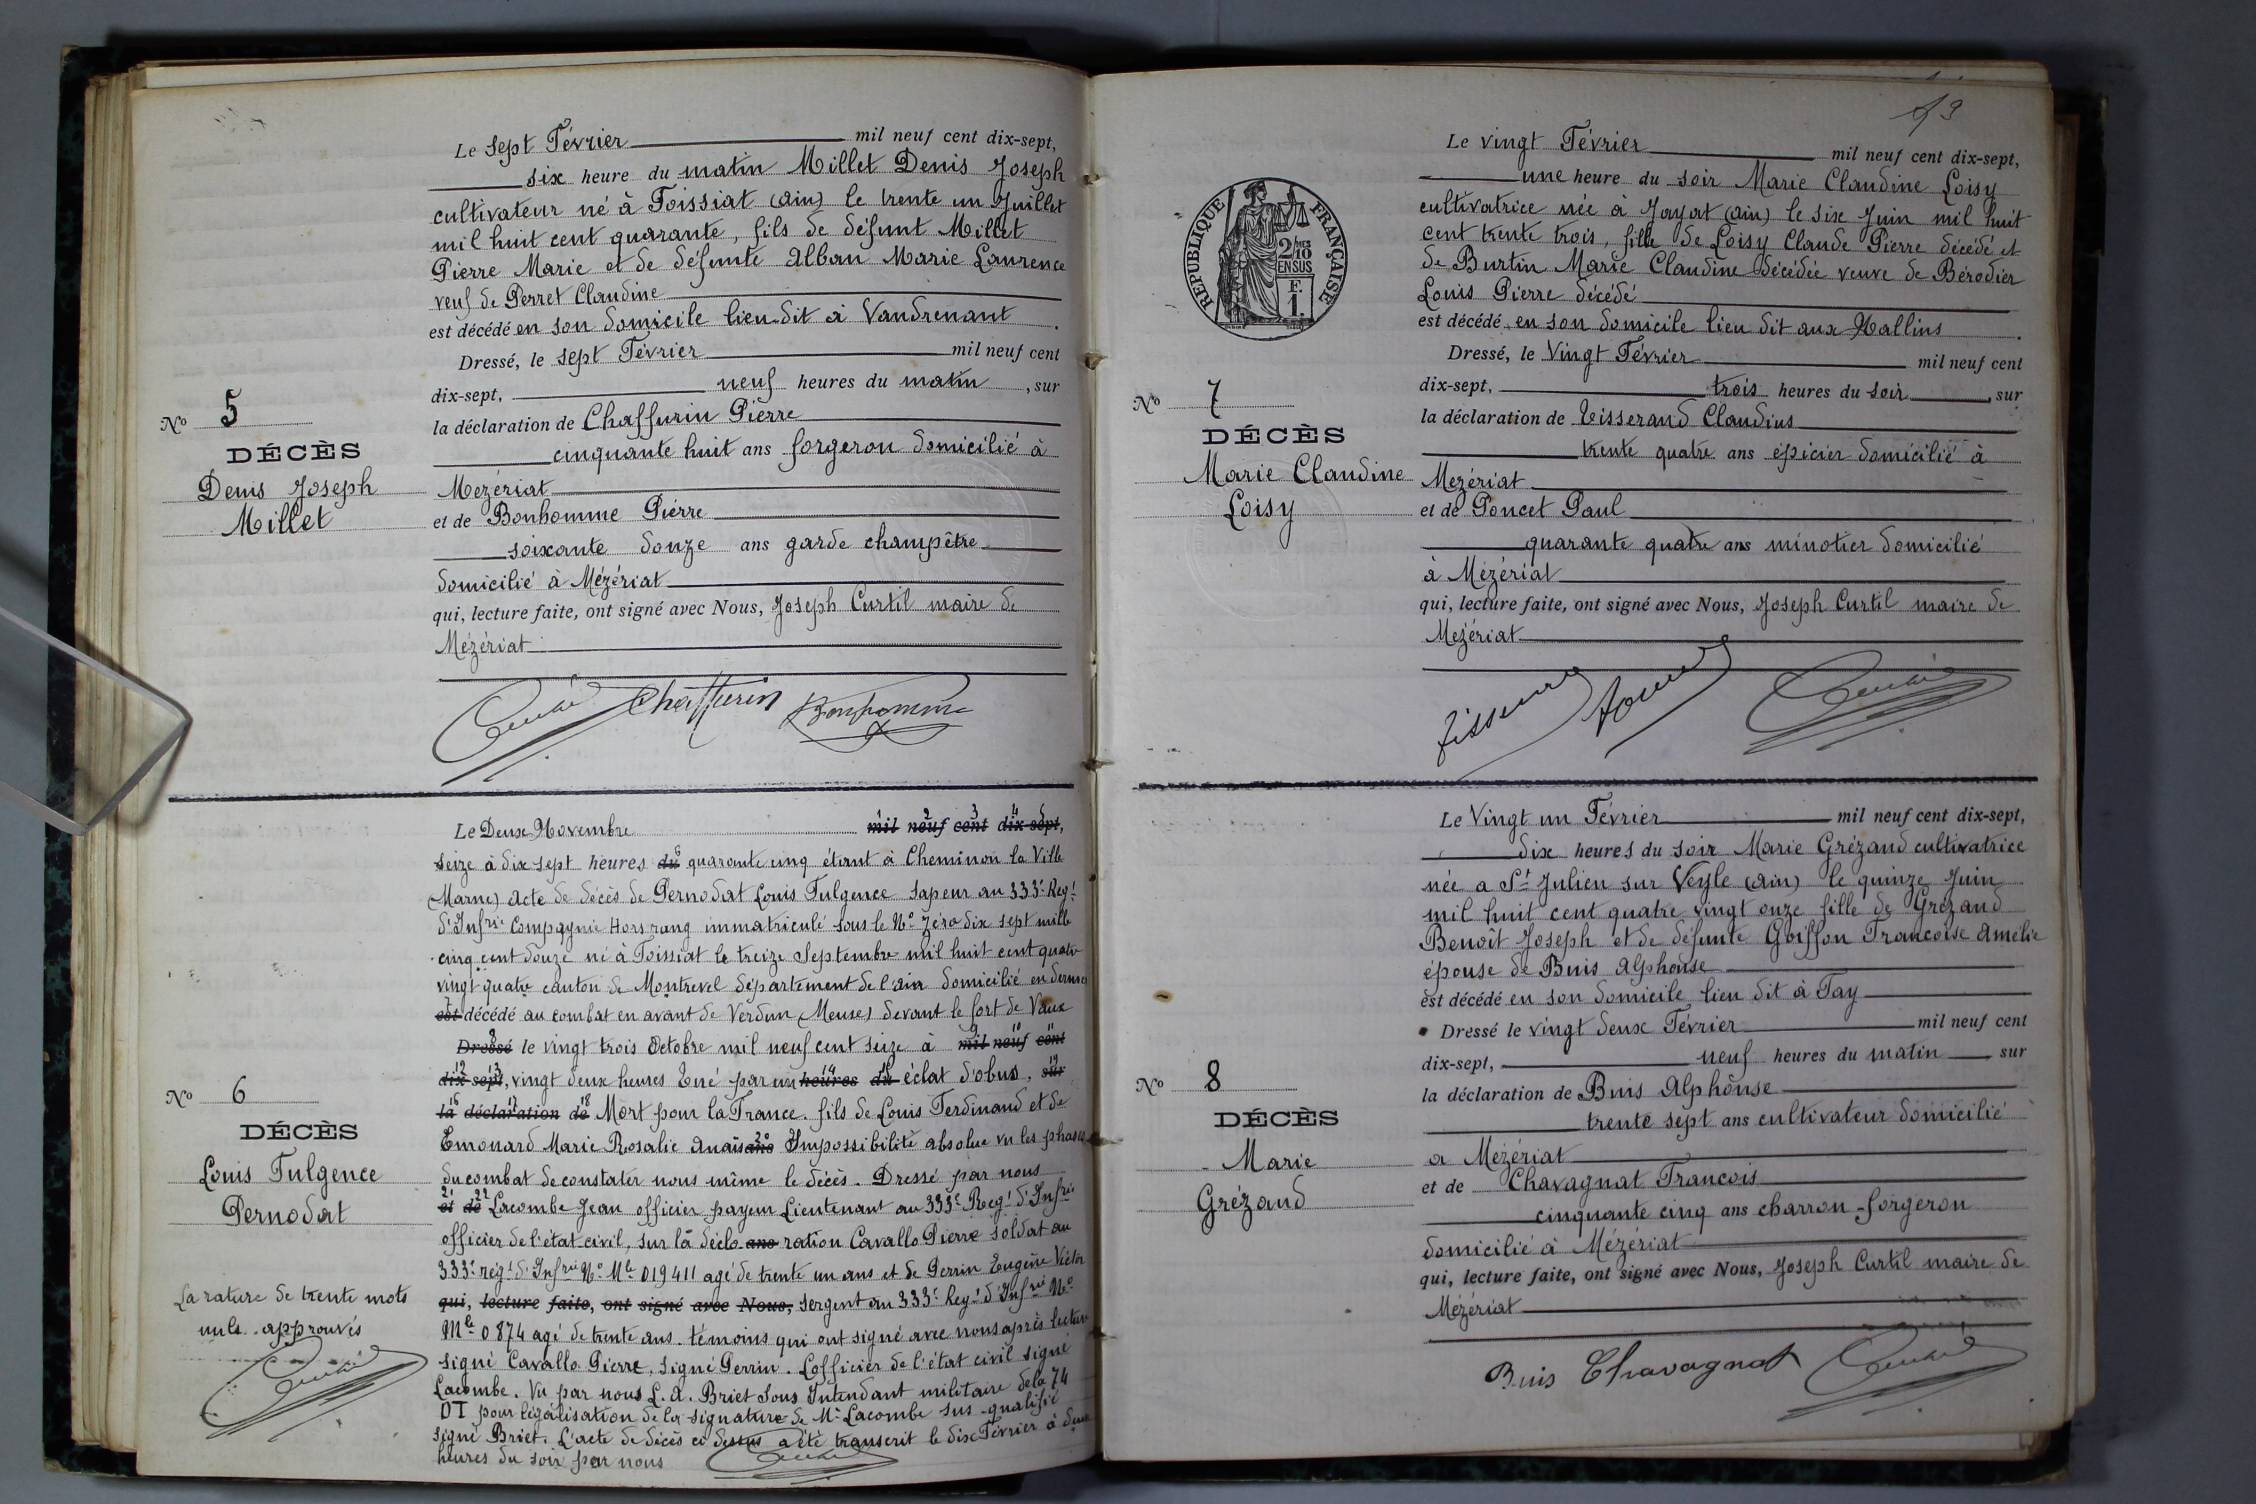 Le sept Février mil neuf cent dix-sept,
six heure du matin Millet Denis Joseph
cultivateur né à Foissiat (Ain) le trente un Juillet
mil huit cent quarante, fils de défunt Millet
Pierre Marie et de défunte Alban Marie Laurence
veuf de Perret Claudine
est décédé en son domicile lieu-dit à Vandrenant.
Dressé, le sept Février mil neuf cent
dix-sept, neuf heures du matin, sur
la déclaration de Chaffurin Pierre
cinquante huit ans forgeron domicilié à
Mézériat
et de Bonhomme Pierre
soixante douze ans garde champêtre
domicilié à Mézériat
qui, lecture faite, ont signé avec Nous, Joseph Curtil maire de
Mézériat
Chaffurin Bonhomme
No 5
DÉCÈS
Denis Joseph
Millet
Le Deux Novembre mil neuf cent dix-sept,
seize à dix sept heures du quarante cinq étant à Cheminon la Ville
(Marne) Acte de décès de Pernodat Louis Fulgence Sapeur au 333e Regt
d'Infrie Compagnie Hors rang immatriculé sous le No Zéro dix sept mille
cinq cent douze né à Foissiat le treize Septembre mil huit cent quatre
vingt quatre canton de Montrevel département de l'ain domicilié en dernier
est décédé au combat en avant de Verdun (Meuse) devant le fort de Vaux
Dressé le vingt trois Octobre mil neuf cent seize à mil neuf cent
dix-sept, vingt deux heures Tué par un heures du éclat d'obus, sur
la déclaration de Mort pour la France. fils de Louis Ferdinand et de
Emonard Marie Rosalie Anaïs ans Impossibilité absolue vu les phases
du combat de constater nous même le décès. Dressé par nous
et de Lacombe Jean officier payeur Lieutenant au 333e Regt d'Infrie
officier de l'état civil, sur la décla ans ration Cavallo Pierre soldat au
333e regt d'Infrie No Mle 019411 agé de trente un ans et de Perrin Eugène Victor
qui, lecture faite, ont signé avec Nous, sergent au 333e Regt d'Infrie No
Mle 0874 agé de trente ans. témoins qui ont signé avec nous après lecture
signé Cavallo Pierre, signé Perrin. L'officier de l'état civil signé
Lacombe. Vu par nous L. A. Briet Sous Intendant militaire de la 74
DI pour légalisation de la signature de Mr Lacombe sus-qualifié
signé Briet. L'acte de décès ci dessus a été transcrit le dix Février à deux
heures du soir par nous
No 6
DÉCÈS
Louis Fulgence
Pernodat
La rature de trente mots
nuls approuvés
Le vingt Février mil neuf cent dix-sept,
une heure du soir Marie Claudine Loisy
cultivatrice née à Jayat (Ain) le six Juin mil huit
cent trente trois, fille de Loisy Claude Pierre décédé et
de Burtin Marie Claudine décédée veuve de Bérodier
Louis Pierre décédé
est décédé en son domicile lieu dit aux Mallins.
Dressé, le Vingt Février mil neuf cent
dix-sept, trois heures du soir, sur
la déclaration de Tisserand Claudius
trente quatre ans épicier domicilié à
Mézériat
et de Poncet Paul
quarante quatre ans minotier domicilié
à Mézériat
qui, lecture faite, ont signé avec Nous, Joseph Curtil maire de
Mézériat
RÉPUBLIQUE FRANÇAISE
2/10 EN SUS
F. 1.
No 7
DÉCÈS
Marie Claudine
Loisy
Le Vingt un Février mil neuf cent dix-sept,
dix heures du soir Marie Grézaud cultivatrice
née a St Julien sur Veyle (Ain) le quinze Juin
mil huit cent quatre vingt onze fille de Grézaud
Benoît Joseph et de défunte Goiffon Francoise Amélie
épouse de Buis Alphonse
est décédé en son domicile lieu dit à Tay
Dressé le vingt deux Février mil neuf cent
dix-sept, neuf heures du matin sur
la déclaration de Buis Alphonse
trente sept ans cultivateur domicilié
a Mézériat
et de Chavagnat Francois
cinquante cinq ans charron-forgeron
domicilié à Mézériat
qui, lecture faite, ont signé avec Nous, Joseph Curtil maire de
Mézériat
Buis Chavagnat
No 8
DÉCÈS
Marie
Grézaud